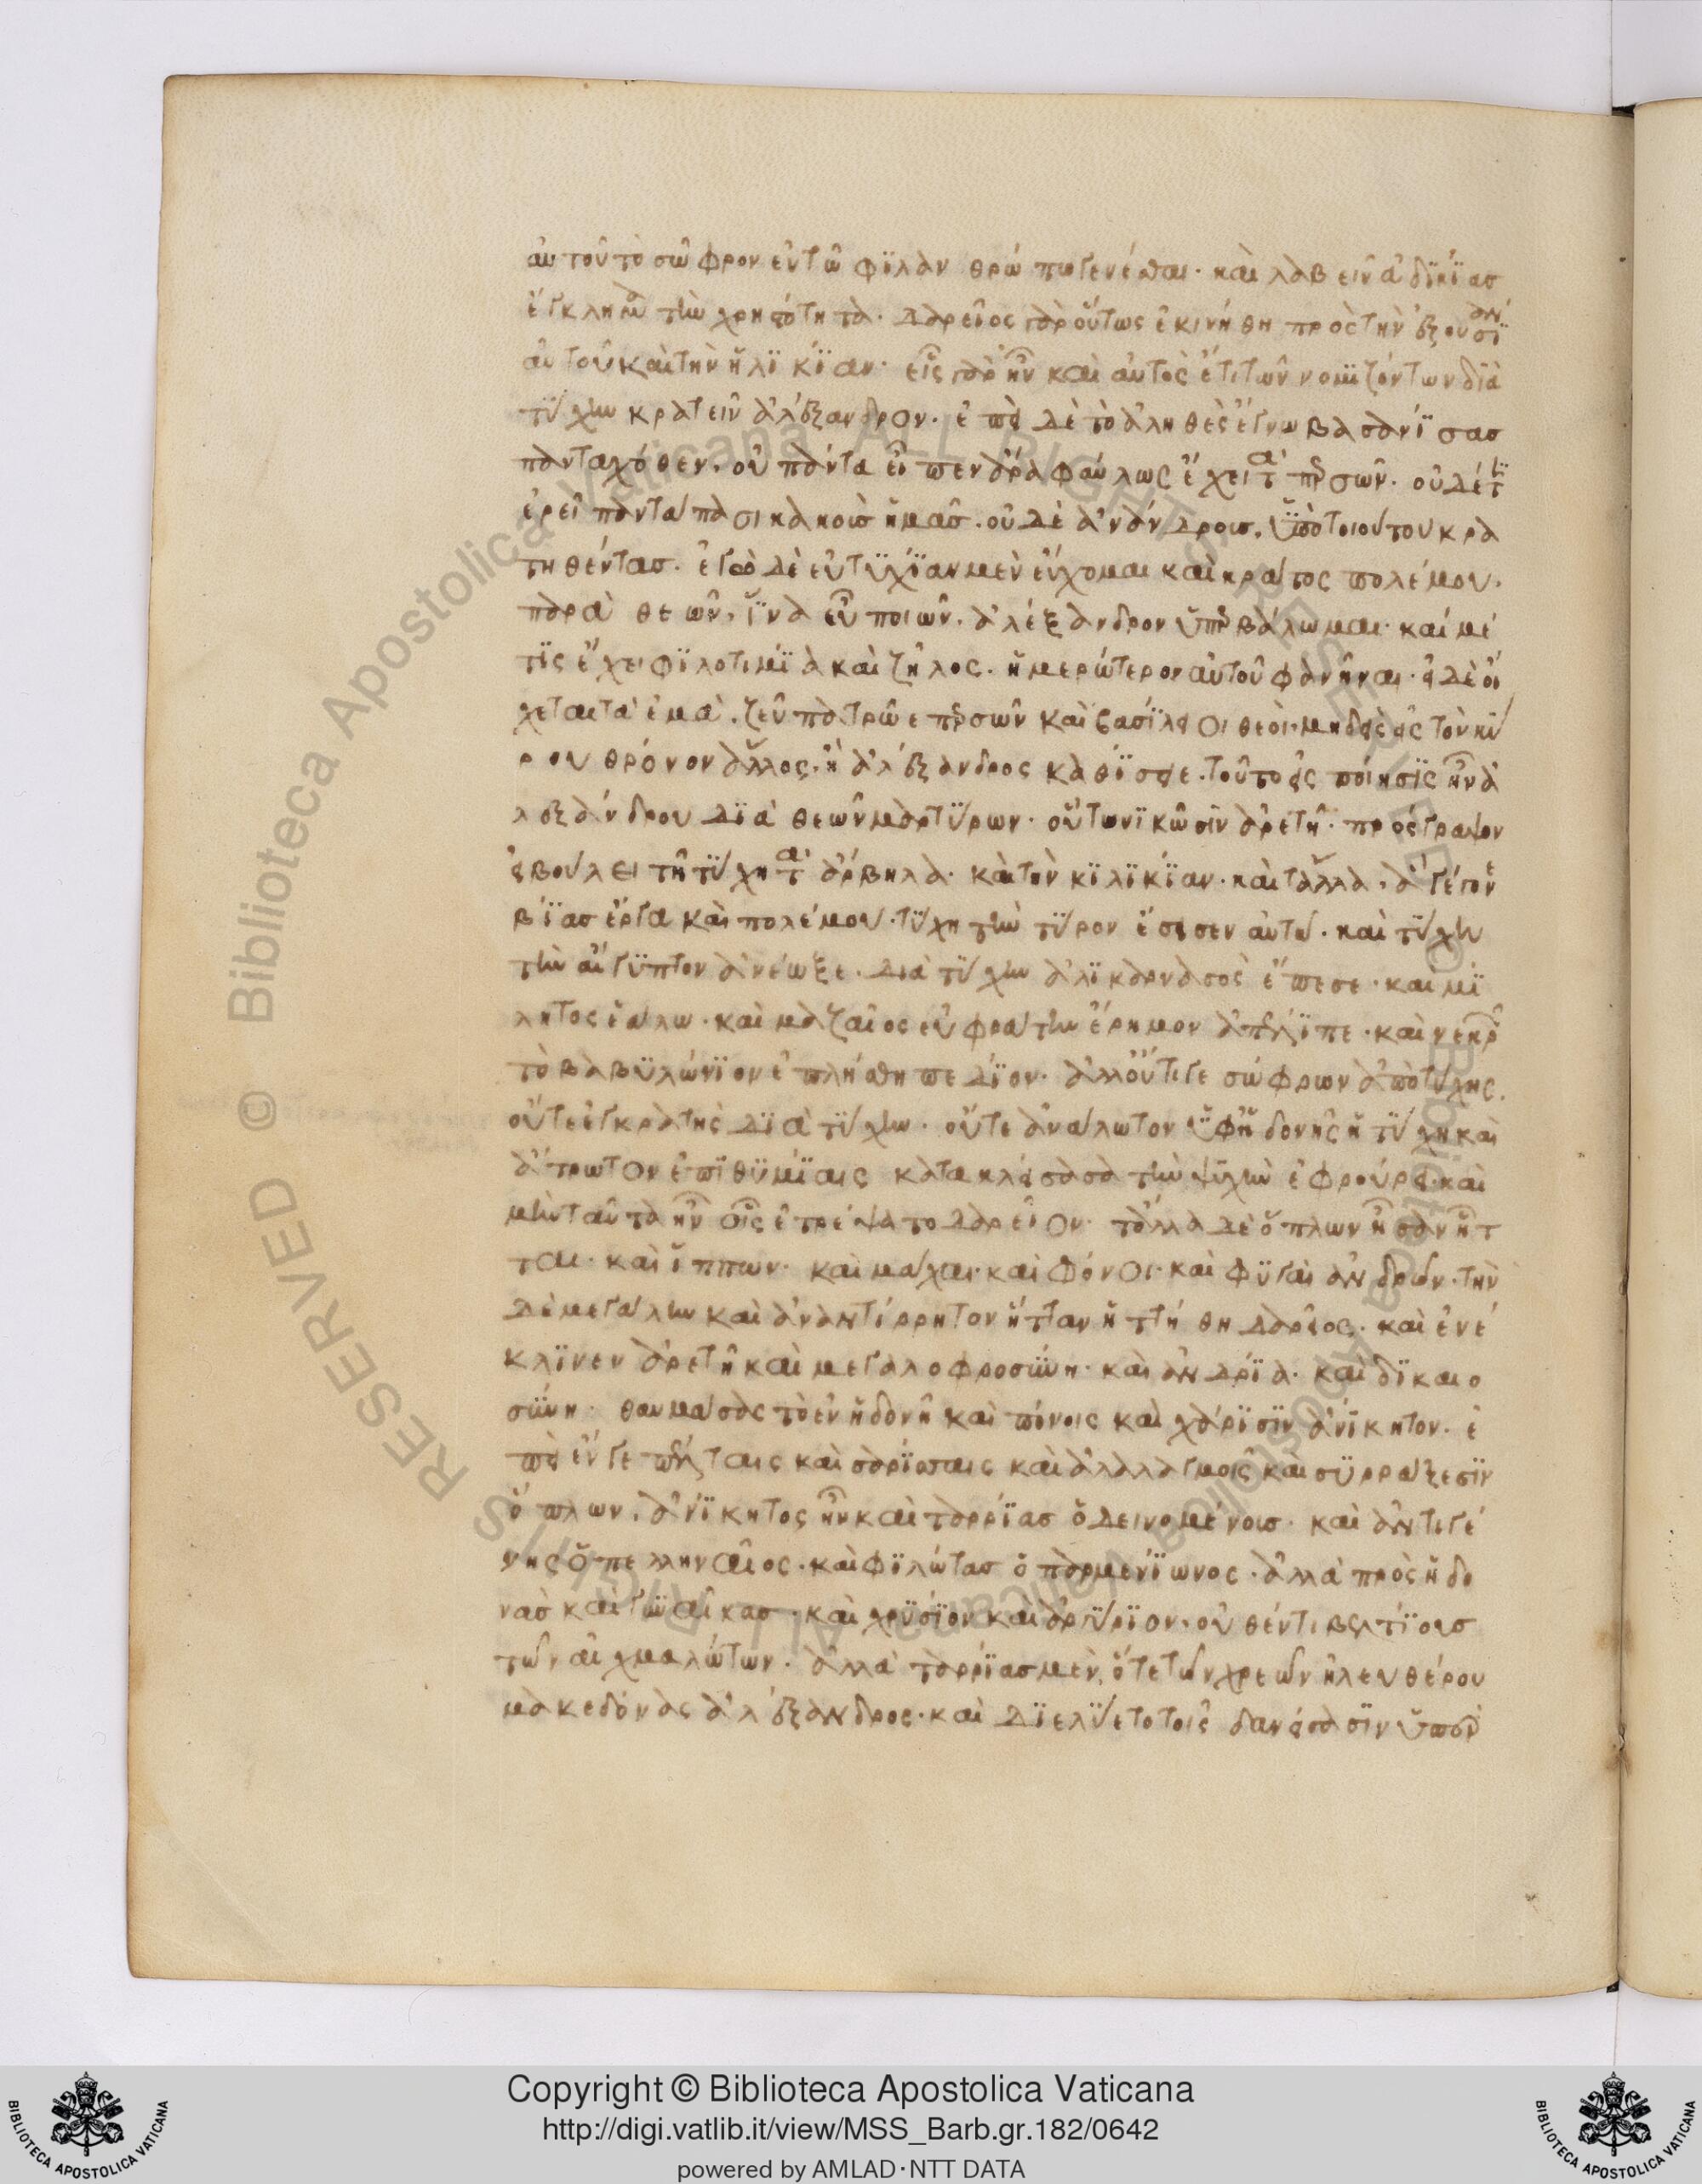 αὐτοῦ τὸ σῶφρον ἐν τῶ φϊλανθρώπω γενέσθαι· καὶ λαβεῖν ἀδϊκϊασ
ἔγκλημα τὴν χρηστότητα. Δαρεῖος γὰρ οὕτως ἐκινήθη πρὸς τὴν ἐξουσϊαν
αὐτοῦ καὶ τὴν ἡλϊκϊαν· εἷς γὰρ ἦν καὶ αὐτὸς ἔτι τῶν νομϊζόντων δϊὰ
τΰχην κρατεῖν ἀλέξανδρον. ἐπεὶ δὲ τὸ ἀληθὲς ἔγνω βασανΐσασ
πανταχόθεν. οὐ πάντα εἶπεν ἄρα φαύλως ἔχει τὰ περσῶν. οὐδέ τϊς
ἐρεῖ πανταπασι κακοὺσ ἡμᾶσ. οὐδὲ ἀνάνδρουσ. ὑπὸ τοιούτου κρα
τηθέντασ. ἐγὼ δὲ εὐτϋχΐαν μὲν εὔχομαι καὶ κράτος πολέμου.
παρὰ θεῶν, ἵνα εὖ ποιῶν, ἀλέξανδρον ὑπερβάλωμαι· καί μέ
τϊς ἔχει φϊλοτιμΐα καὶ ζῆλος. ἡμερώτερον αὐτοῦ φανῆναι. εἰ δὲ οἴ
χεται τὰ ἐμὰ. ζεῦ πατρῶε περσῶν καὶ βασΐλειοι θεοὶ. μηδεὶς εἰς τὸν κύ
ρου θρόνον ἄλλος. ἢ ἀλέξανδρος καθΐσειε. τοῦτο εἰς ποίησϊς ἦν ἀ
λεξάνδρου δϊὰ θεῶν μαρτΰρων. οὕτω νϊκῶσϊν ἀρετῆ. πρόςγραψον
εἰ βούλει τῆ τΰχη τὰ ἄρβηλα. καὶ τὴν κϊλϊκΐαν. καὶ τἄλλα, ἃ γέγονε
βΐασ ἔργα καὶ πολέμου. τΰχη τὴν τΰρον ἔσεισεν αὐτῶ. καὶ τΰχη
τὴν αἴγϋπτον ἀνέωξε. διὰ τΰχην ἀλϊκαρνασὸς ἔπεσε. καὶ μϊ
λητος ἑάλω. καὶ μαζαῖος εὐφράτην ἔρημον ἀπέλϊπε. καὶ νεκρῶν
τὸ βαβϋλώνϊον ἐπλήσθη πεδΐον. ἀλλ' οὔτι γε σώφρων ἀπὸ τύχης.
οὔτε ἐγκρατὴς δϊὰ τΰχην. οὔτε ἀνάλωτον ὑφ' ἡδονῆς ἡ τΰχη καὶ
ἄτρωτον ἐπϊθϋμΐαις κατακλείσασα τὴν ψϋχὴν ἐφρούρει. καὶ
μὴν ταῦτα ἦν οἷς ἐτρέψατο δαρεῖον. τὄλλα δὲ ὅπλων ἦσαν ἧτ
ται. καὶ ἵππων. καὶ μάχαι. καὶ φόνοι. καὶ φϋγαὶ ἀνδρῶν. τὴν
δὲ μεγάλην καὶ ἀναντίρρητον ἧτταν ἡττήθη δαρεῖος. καὶ ἐνέ
κλϊνεν ἀρετῆ καὶ μεγαλοφροσύνη. καὶ ἀνδρΐα. καὶ δϊκαιο
σΰνη. θαυμάσας τὸ ἐν ἡδονῆ καὶ πόνοις καὶ χάρϊσϊν ἀνίκητον. ἐ
πεὶ ἔν γε πέλταις καὶ σαρΐσσαις καὶ ἀλαλαγμοῖς καὶ σϋρράξεσϊν
ὅπλων. ἀνΐκητος ἦν καὶ ταρρΐασ ὁ δεινομένουσ. καὶ ἀντιγέ
νης ὁ πελληναῖος. καὶ φϊλώτασ ὁ παρμενΐωνος. ἀλλὰ πρὸς ἡδο
νὰσ καὶ γϋναῖκασ. καὶ χρϋσΐον καὶ ἀργΰρϊον. οὐθέν τι βελτΐουσ
τῶν αἰχμαλώτων. ἀλλὰ ταρρΐασ μὲν, ὅτε τῶν χρεῶν ἠλευθέρου
μακεδόνας ἀλέξανδρος. καὶ δϊελΰετο τοῖς δανείσασϊν ὑπὲρ
Copyright © Biblioteca Apostolica Vaticana
http://digi.vatlib.it/view/MSS_Barb.gr.182/0642
powered by AMLAD·NTT DATA
BIBLIOTECA APOSTOLICA VATICANA
BIBLIOTECA APOSTOLICA VATICANA